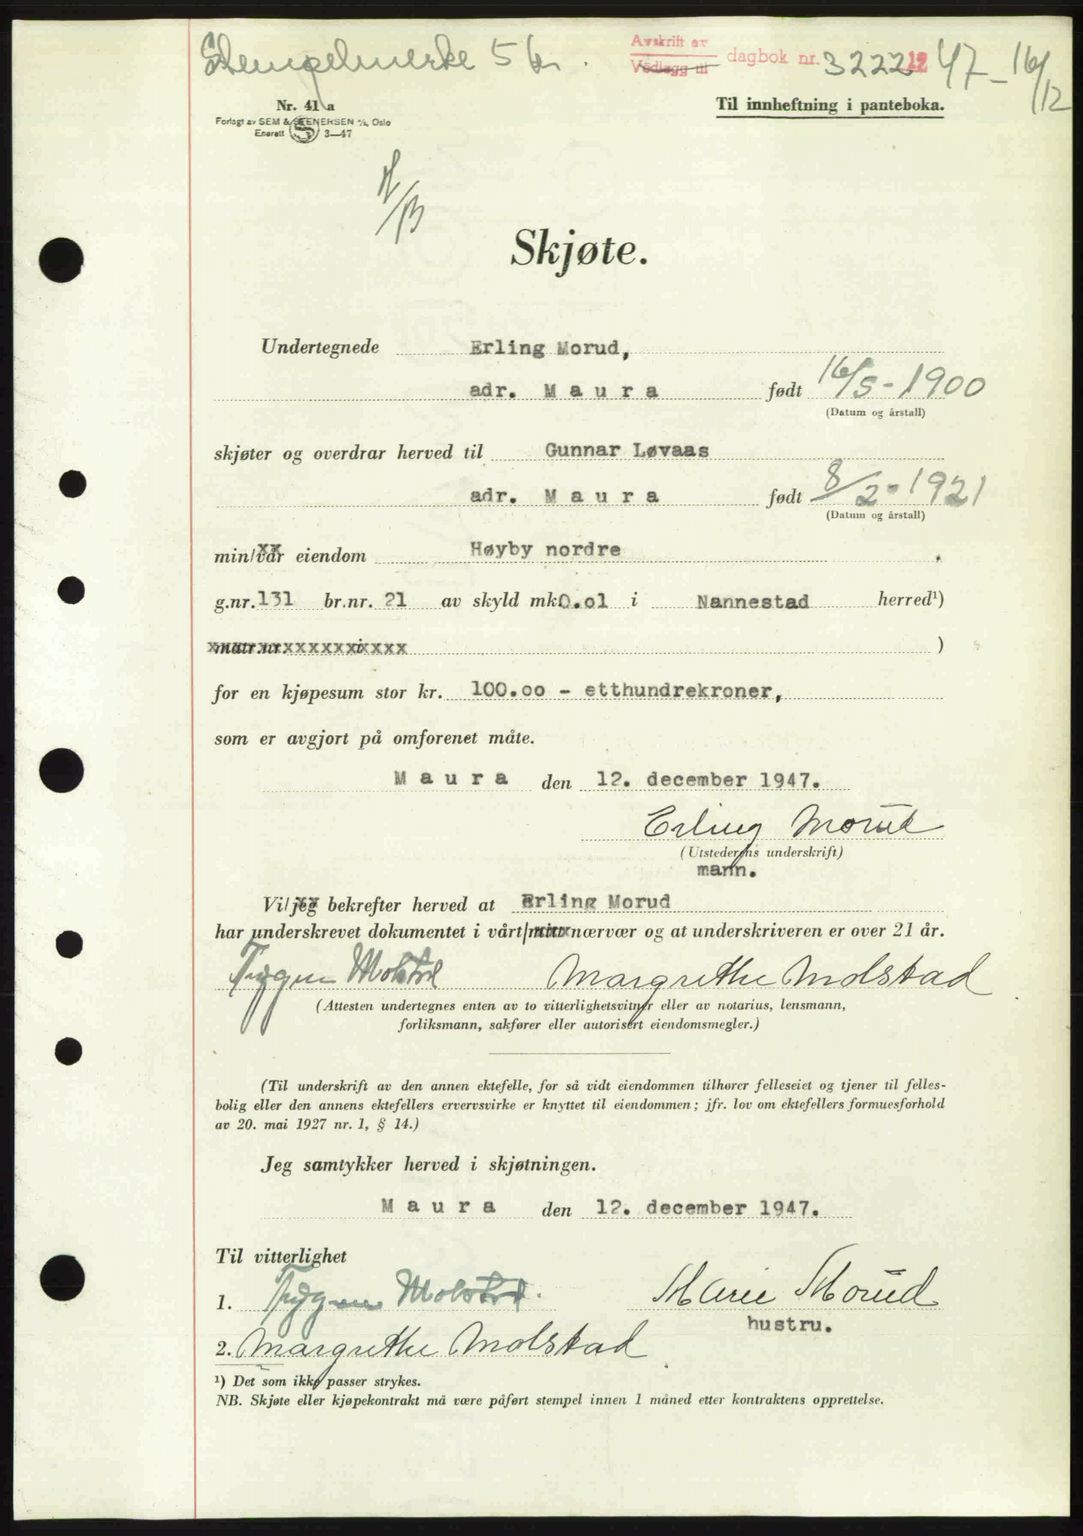 Stempelmerke 5 kr.
Avskrift av
Vedlegg til dagbok nr. 3222 12 47 - 16/12
Nr. 41 a
Forlagt av SEM & STENERSEN A/S, Oslo
Enerett S 3—47
Til innheftning i panteboka.
Skjøte.
Undertegnede Erling Morud,
adr. Maura født 16/5-1900
(Datum og årstall)
skjøter og overdrar herved til Gunnar Løvaas
adr. Maura født 8/2-1921
(Datum og årstall)
min/vår eiendom Høyby nordre .
g.nr. 131 br.nr. 21 av skyld mk 0.01 i Nannestad herred¹)
matr.nr. i )
for en kjøpesum stor kr. 100.00 - etthundrekroner,
som er avgjort på omforenet måte.
Maura den 12. december 1947.
Erling Morud
(Utstederens underskrift)
mann.
Vi/jeg bekrefter herved at Erling Morud
har underskrevet dokumentet i vårt/mitt nærvær og at underskriveren er over 21 år.
Trygve Molstad Margrethe Molstad
(Attesten undertegnes enten av to vitterlighetsvitner eller av notarius, lensmann,
forliksmann, sakfører eller autorisert eiendomsmegler.)
(Til underskrift av den annen ektefelle, for så vidt eiendommen tilhører felleseiet og tjener til felles-
bolig eller den annens ektefellers ervervsvirke er knyttet til eiendommen; jfr. lov om ektefellers formuesforhold
av 20. mai 1927 nr. 1, § 14.)
Jeg samtykker herved i skjøtningen.
Maura den 12. december 1947.
Til vitterlighet
1. Trygve Molstad. Marie Morud
hustru.
2. Margrethe Molstad
¹) Det som ikke passer strykes.
NB. Skjøte eller kjøpekontrakt må være påført stempel innen 1 måned etter kontraktens opprettelse.